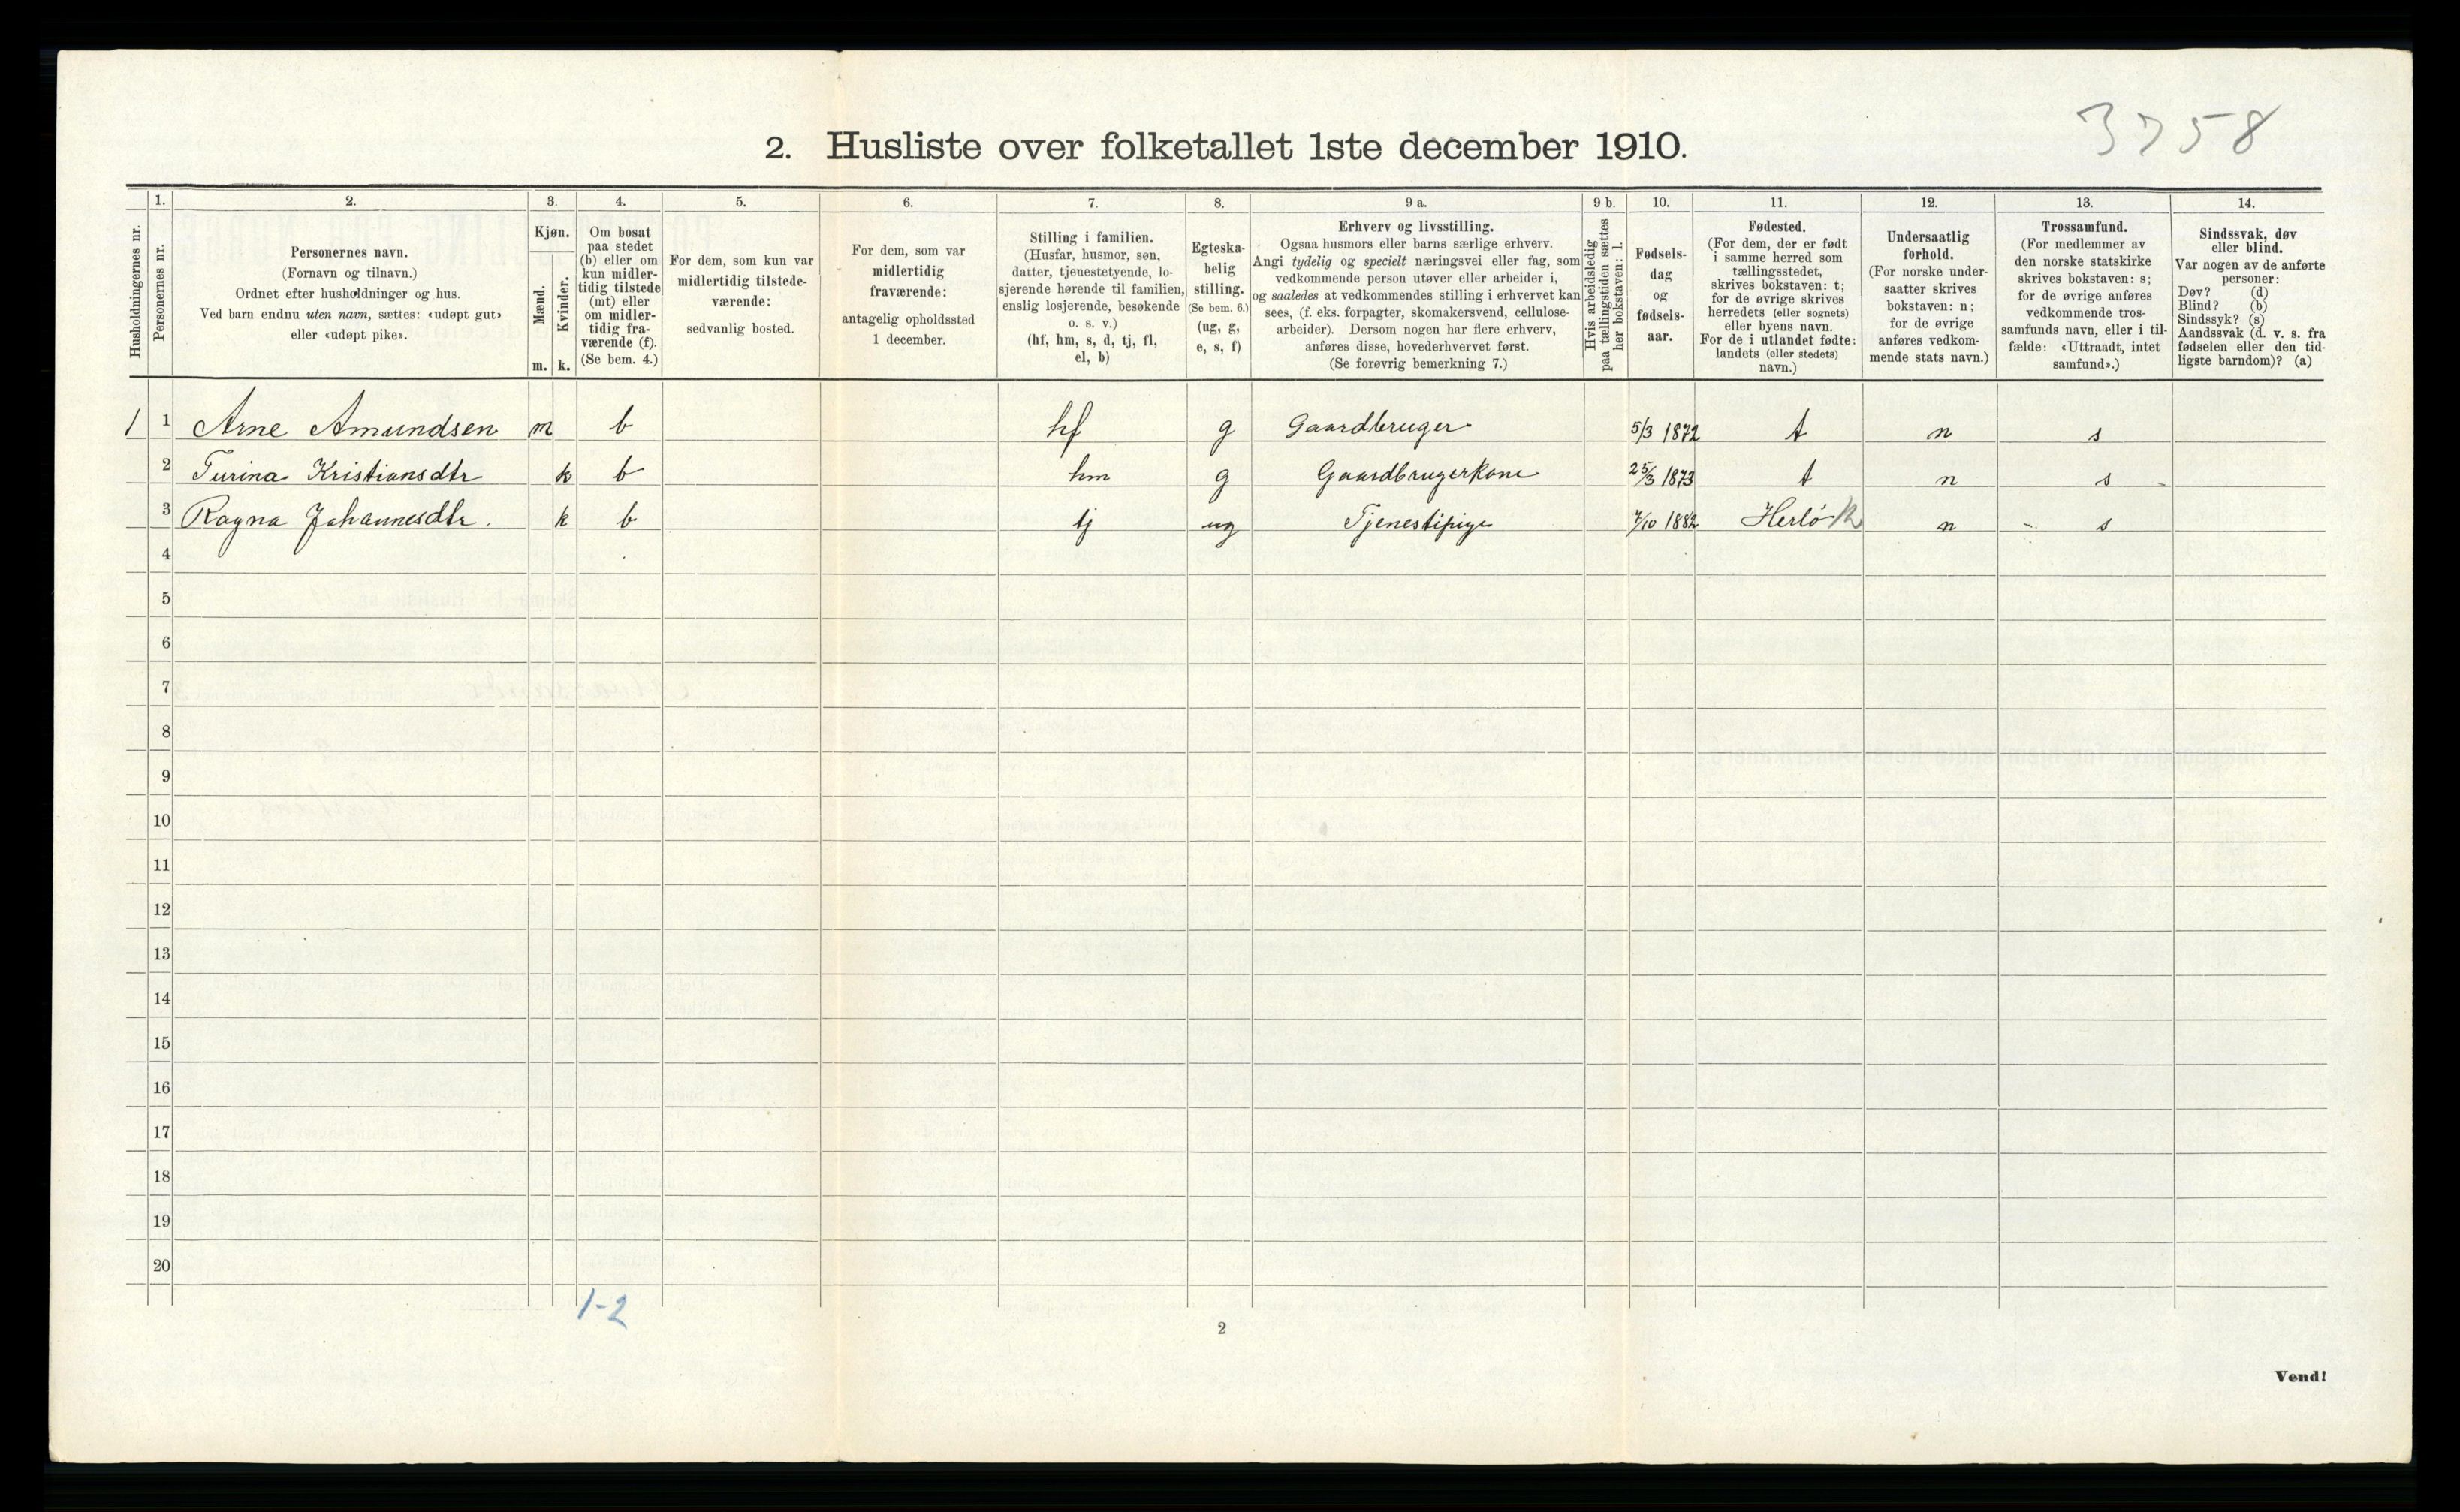 3758
2. Husliste over folketallet 1ste december 1910.
Husholdningernes nr.
1.
Personernes nr.
2.
Personernes navn.
(Fornavn og tilnavn.)
Ordnet efter husholdninger og hus.
Ved barn endnu uten navn, sættes: «udøpt gut»
eller «udøpt pike».
3.
Kjøn.
Mænd.
Kvinder.
m. k.
4.
Om bosat
paa stedet
(b) eller om
kun midler-
tidig tilstede
(mt) eller
om midler-
tidig fra-
værende (f).
(Se bem. 4.)
5.
For dem, som kun var
midlertidig tilstede-
værende:
sedvanlig bosted.
6.
For dem, som var
midlertidig
fraværende:
antagelig opholdssted
1 december.
7.
Stilling i familien.
(Husfar, husmor, søn,
datter, tjenestetyende, lo-
sjerende hørende til familien,
enslig losjerende, besøkende
o. s. v.)
(hf, hm, s, d, tj, fl,
el, b)
8.
Egteska-
belig
stilling.
(Se bem. 6.)
(ug, g,
e, s, f)
9 a.
Erhverv og livsstilling.
Ogsaa husmors eller barns særlige erhverv.
Angi tydelig og specielt næringsvei eller fag, som
vedkommende person utøver eller arbeider i,
og saaledes at vedkommendes stilling i erhvervet kan
sees, (f. eks. forpagter, skomakersvend, cellulose-
arbeider). Dersom nogen har flere erhverv,
anføres disse, hovederhvervet først.
(Se forøvrig bemerkning 7.)
9 b.
Hvis arbeidsledig
paa tællingstiden sættes
her bokstaven: l.
10.
Fødsels-
dag
og
fødsels-
aar.
11.
Fødested.
(For dem, der er født
i samme herred som
tællingsstedet,
skrives bokstaven: t;
for de øvrige skrives
herredets (eller sognets)
eller byens navn.
For de i utlandet fødte:
landets (eller stedets)
navn.)
12.
Undersaatlig
forhold.
(For norske under-
saatter skrives
bokstaven: n;
for de øvrige
anføres vedkom-
mende stats navn.)
13.
Trossamfund.
(For medlemmer av
den norske statskirke
skrives bokstaven: s;
for de øvrige anføres
vedkommende tros-
samfunds navn, eller i til-
fælde: «Uttraadt, intet
samfund».)
14.
Sindssvak, døv
eller blind.
Var nogen av de anførte
personer:
Døv? (d)
Blind? (b)
Sindssyk? (s)
Aandssvak (d. v. s. fra
fødselen eller den tid-
ligste barndom)? (a)
1 1 Arne Amundsen m b hf g Gaardbruger 5/3 1872 t n s
2 Turina Kristiansdtr k b hm g Gaardbrugerkone 25/3 1873 t n s
3 Ragna Johannesdtr. k b tj ug Tjenestipige 7/10 1882 Herlö n s
4
5
6
7
8
9
10
11
12
13
14
15
16
17
18
19
20
1-2
2
Vend!